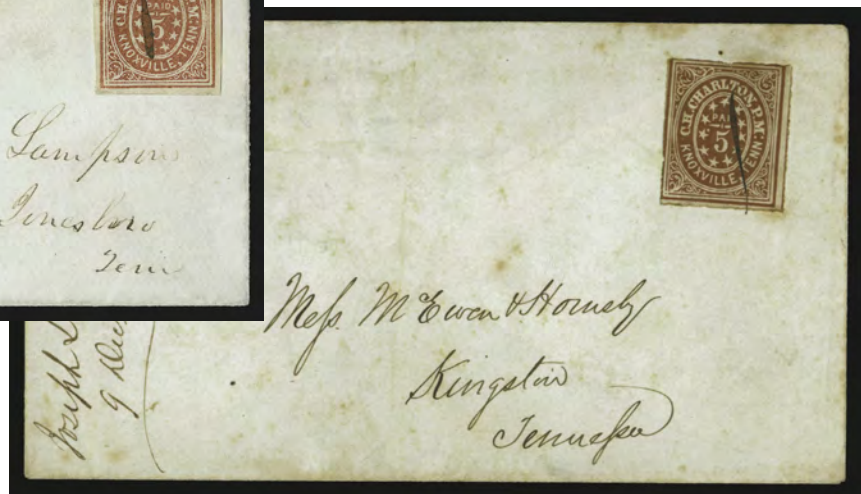 PAID
5
KNOXVILLE, TENN.
Sampson
Jonesboro
Tenn
C.H. CHARLTON, P.M.
PAID
5
KNOXVILLE, TENN.
Mess. McEwen & Hornsby
Kingston
Tennessee
Joseph
9 Dec